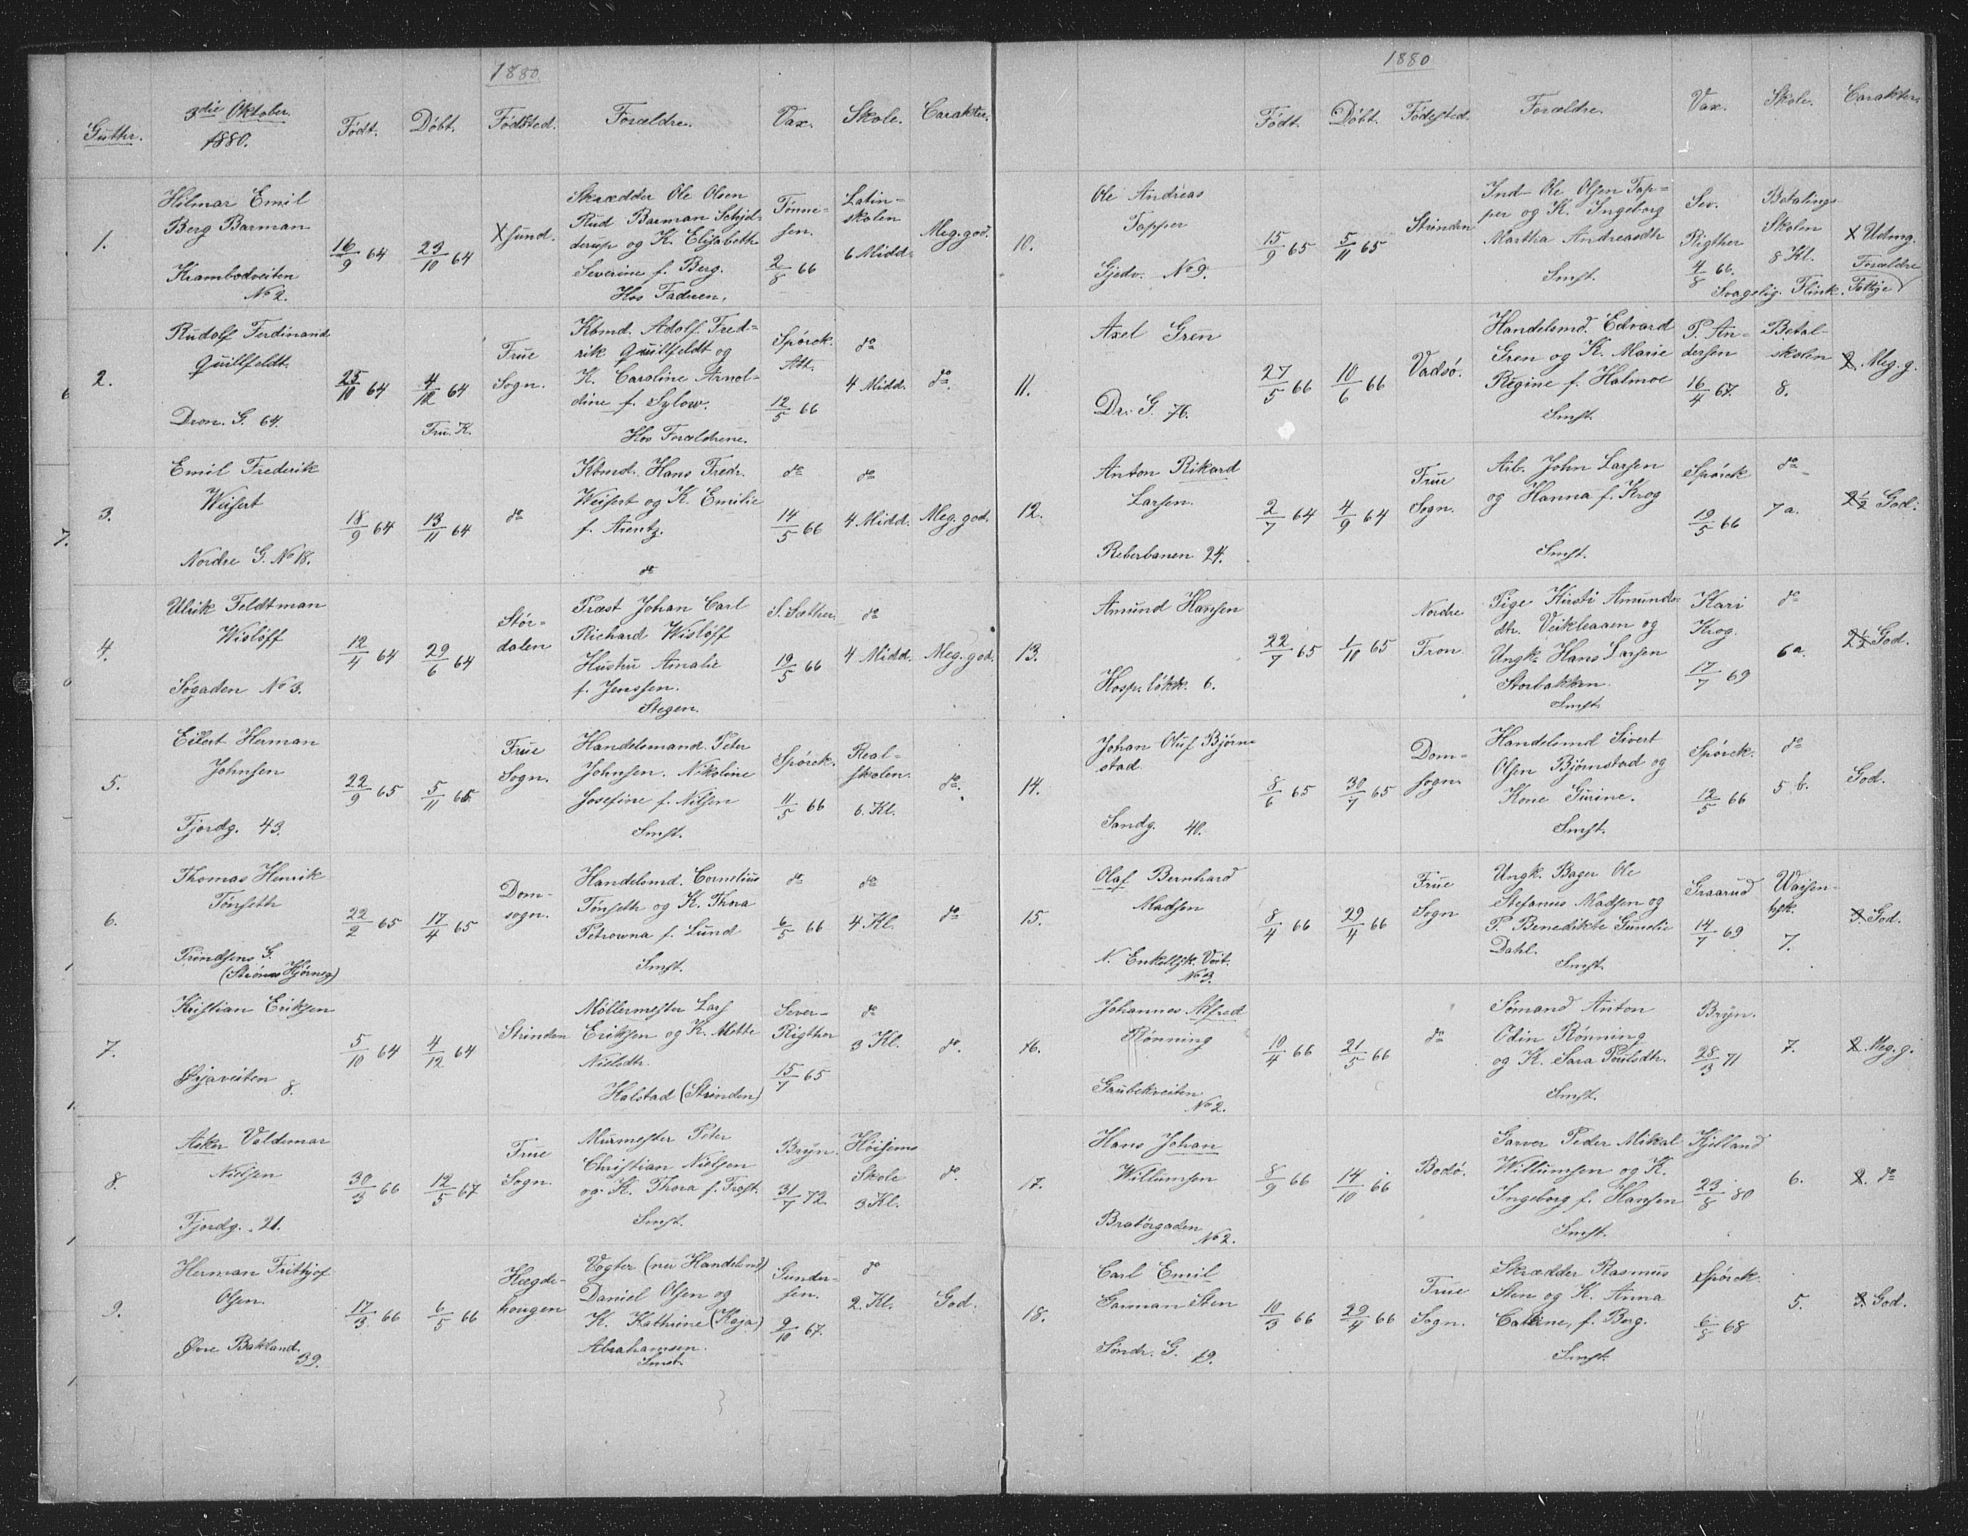 1880.
Gutter.
3die Oktober
1880.
Født.
Døbt.
Fødsted.
Forældre.
Vax.
Skole.
Carakter.
1.
Hilmar Emil
Berg Barman
Krambodveiten
No 2.
16/9 64
23/10 64
X sund.
Skrædder Ole Olsen
Rud Barman Schjel-
derup og K. Elisabeth
Severine f. Berg.
Hos Faderen.
Tønne-
sen.
2/8 66
Latin-
skolen
6 Midd.
Meg. god.
2.
Rudolf Ferdinand
Quillfeldt
Dron. G. 64.
25/10 64
4/12 64
Fru. K.
Frue
Sogn.
Kbmd. Adolf Fred-
rik Quillfeldt og
K. Caroline Arnol-
dine f. Sylow.
Hos Forældrene.
Spørck.
Att.
12/5 66
do
4 Midd.
do.
3.
Emil Frederik
Weisert
Nordre G. No 18.
18/9 64
13/11 64
do
Kbmd. Hans Fredr.
Weisert og K. Emilie
f. Arentz.
do
do
14/5 66
do
4 Midd.
Meg. god.
4.
Ulrik Feldtman
Wisløff
Søgaden No 3.
12/4 64
29/6 64
Stør-
dalen
Præst Johan Carl
Richard Wisløff
Hustru Amalie
f. Jenssen.
Stegen.
S. Sæther.
19/5 66
do
4 Midd.
Meg. god.
5.
Eilert Herman
Johnsen
Fjordg. 43.
22/9 65
5/11 65
Frue
Sogn.
Handelsmand Peter
Johnsen. Nikoline
Josefine f. Nilsen
Smst.
Spørck.
11/5 66
Real-
skolen.
6. Kl.
do.
6.
Thomas Henrik
Tønseth
Trindsens G.
(Strømes Hjørneg)
22/2 65
17/4 65
Dom-
sogn.
Handelsmd. Cornelius
Tønseth og K. Thora
Petrowna f. Lund
Smst.
do
6/5 66
do
4 Kl.
do
7.
Kristian Eriksen
Øyaveiten
8.
5/10 64
4/12 64
Strinden
Møllermester Lars
Eriksen og K. Mette
Nielsdtr.
Halstad (Strinden)
Sever-
Rigther
15/7 65
do
3 Kl.
do.
8.
Asker Valdemar
Nielsen
Fjordg. 21.
30/3 66
12/5 67
Frue
Sogn.
Murmester Peter
Christian Nielsen
og K. Thora f. Trost.
Smst.
Bryn.
31/7 72.
Høisems
Skole
3 Kl.
do.
9.
Herman Frithjof
Olsen.
Øvre Bakland.
39.
17/3 66
6/5 66
Hægde-
hougen
Vogter (nu Handelsmd)
Daniel Olsen og
K. Kathrine (Kaja)
Abrahamsen.
Smst.
Gunder-
sen.
9/10 67.
do
2. Kl.
God.
1880
Født.
Døbt.
Fødested.
Forældre.
Vax.
Skole.
Carakter.
10.
Ole Andreas
Tapper
Gjedv. No 9.
15/9 65
5/11 65
Strinden
Ind- Ole Olsen Tap-
per og K. Ingeborg
Martha Andreasdtr
Smst.
Sev.
Rigther
4/8 66.
Svagelig. Flink.
Betalings
Skolen
8 Kl.
X Udmg.
Forældre
Fattige
11.
Axel Gren
Dr. G. 76.
27/5 66
10/6 66
Vadsø.
Handelsmd. Edvard
Gren og K. Marie
Regine f. Halmøe
Smst.
P. An-
dersen
16/4 67.
Betal-
skolen
8.
2. Meg. g.
12.
Anton Rikard
Larsen.
Reberbanen 24.
2/7 64
4/9 64
Frue
Sogn.
Arb. John Larsen
og Hanna f. Krog
Smst.
Spørck
19/5 66
do
7 a.
2½ God.
13.
Amund Hansen
Hosp. løkk. 6.
22/7 65
1/11 65
Nordre
Fron
Pige Kirsti Amunds-
dtr. Veikleaaen og
Ungk. Hans Larsen
Storbakken.
Smst.
Kari
Krog.
17/7 69
do
6 a.
2½ God.
14.
Johan Oluf Bjørne
stad.
Sandg. 40.
8/6 65
30/7 65
Dom-
sogn
Handelsmd Sivert
Olsen Bjørnstad og
Kone Gurine.
Smst.
Spørck.
12/5 66
do
5 b.
God.
15.
Olaf Bernhard
Madsen
N. Enkeltsk. Veit.
No 3.
8/4 66
29/4 66
Frue
Sogn
Ungk. Bager Ole
Stefanus Madsen og
P. Benedikte Gunelie
Dahl.
Smst.
Graarud
14/7 69
Waisen-
hsk.
7.
3. God.
16.
Johannes Alfred
Rønning
Gaubekveiten
No 2.
10/4 66
21/5 66
do
Sømand Anton
Odin Rønning
og K. Sara Poulsdtr.
Smst.
Bryn.
28/3 71
7.
2. Meg. g.
17.
Hans Johan
Willumsen
Bratørgaden
No 2.
8/9 66
14/10 66
Bodø.
Garver Peder Mikal
Willumsen og K.
Ingeborg f. Hansen
Smst.
Kjelland
23/8 80
6.
2. do
18.
Carl Emil
Garman Sten
Søndr. G. 19.
10/3 66
29/4 66
Frue
Sogn.
Skrædder Rasmus
Sten og K. Anna
Catrine, f. Berg.
Smst.
Spørck.
6/8 68
5.
3. God.